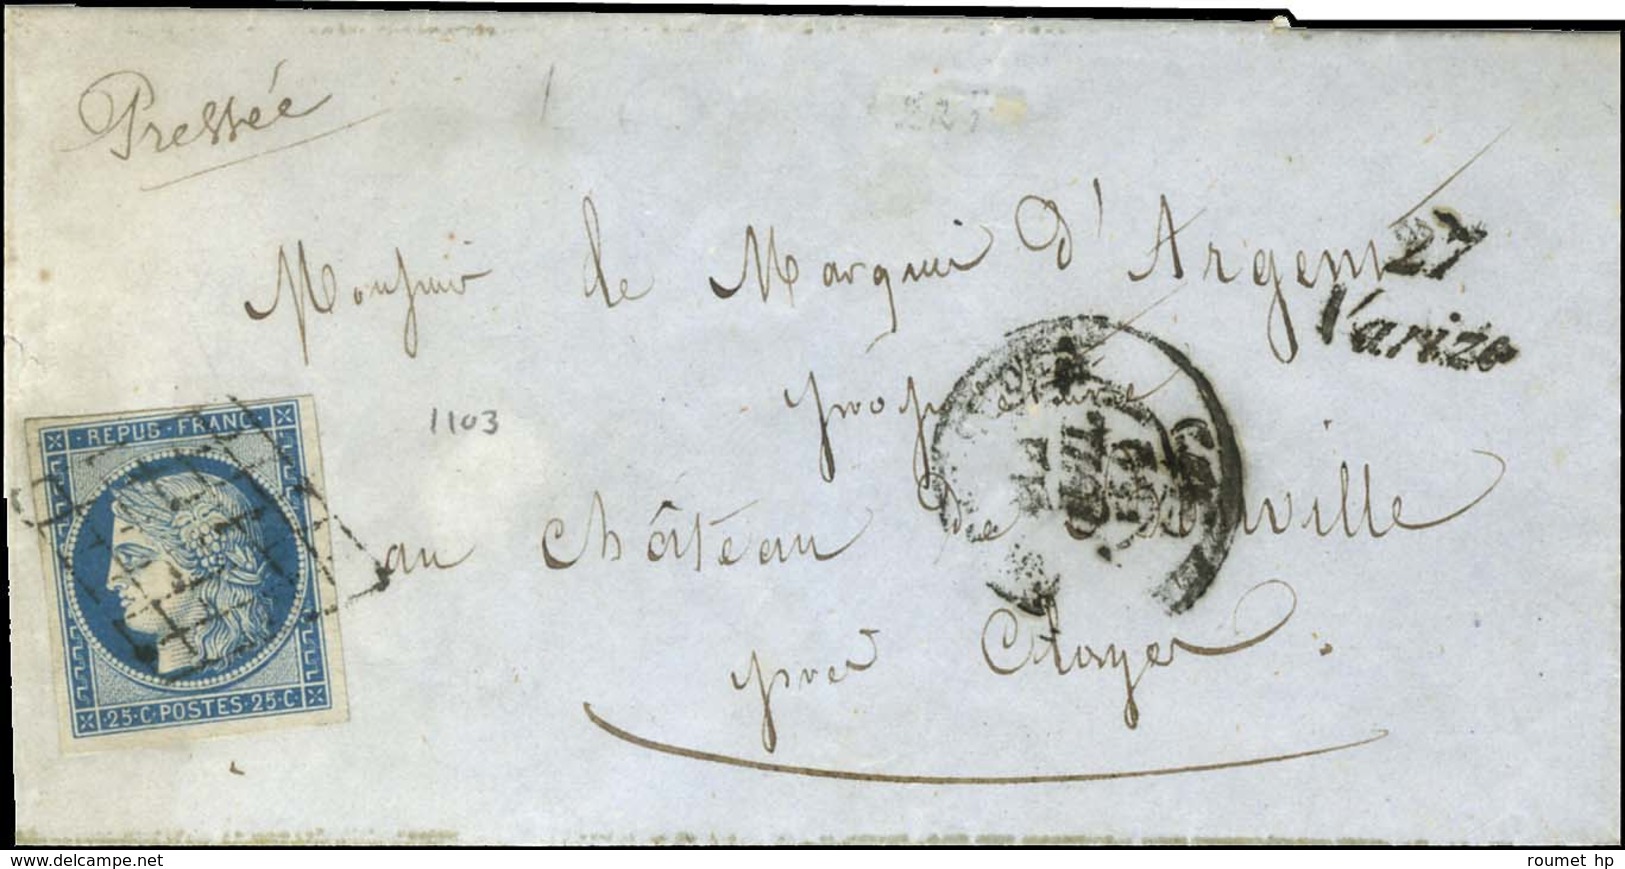 Pressée
27
Varize
Monsieur le Marquis d'Argent
propriétaire
1103
REPUB·FRANC·
au château de
près Cloyes.
25·C·POSTES·25·C·
www.delcampe.net
roumet hp